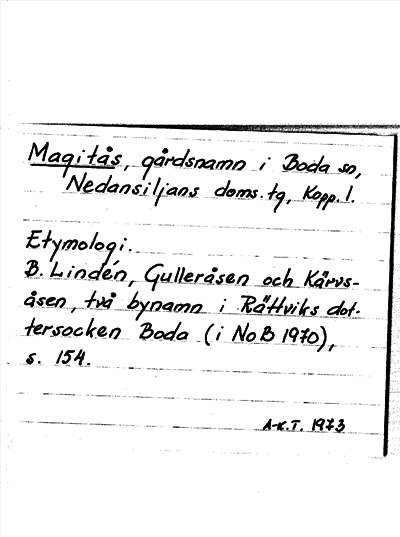 Magitås, gårdsnamn i Boda sn,
Nedansiljans doms. tg, Kopp. l.
Etymologi.
B. Lindén, Gulleråsen och Kårvs-
åsen, två bynamn i Rättviks dot-
tersocken Boda (i NoB 1970),
s. 154.
A-K.T. 1973